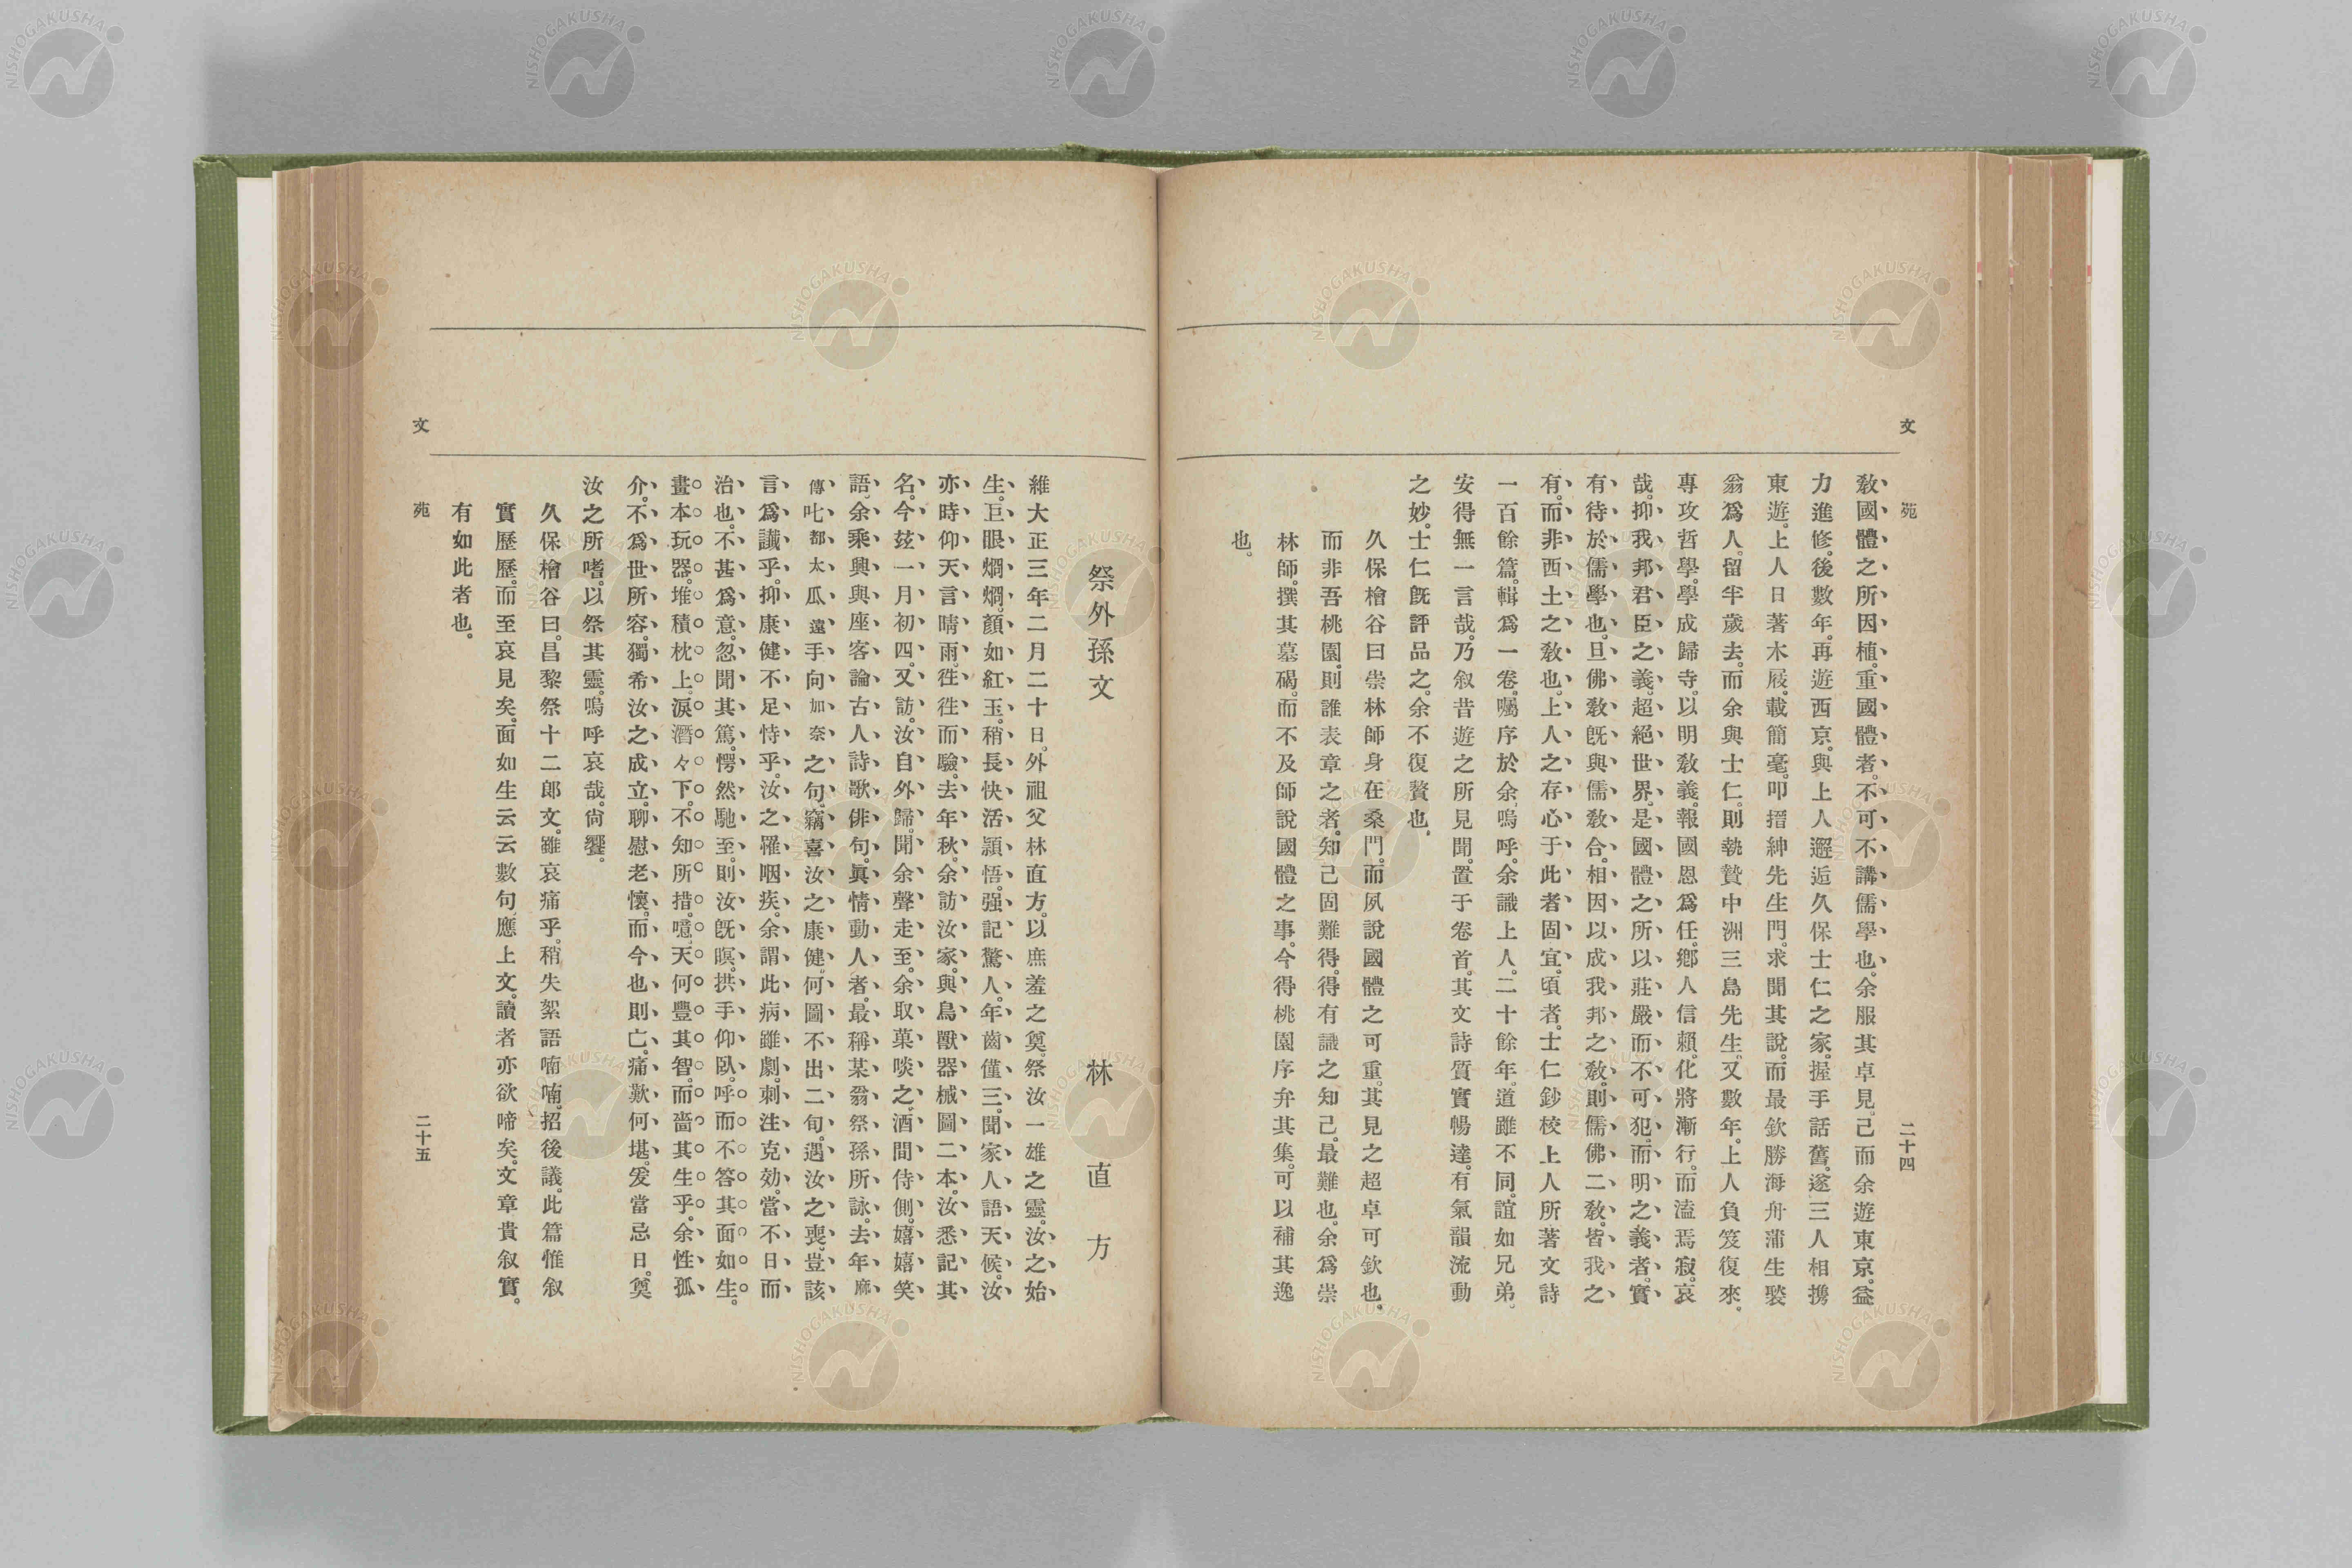 文苑
二十四
敎國體之所因植。重國體者。不可不講儒學也。余服其卓見。己而余遊東京。益
力進修。後數年。再遊西京。與上人邂逅久保士仁之家。握手話舊。遂三人相携
東遊。上人日著木屐。載簡毫。叩搢紳先生門。求聞其說。而最欽勝海舟蒲生褧
翁爲人。留半歲去。而余與士仁。則執贄中洲三島先生。又數年。上人負笈復來。
專攻哲學。學成歸寺。以明敎義。報國恩爲任。鄕人信賴。化將漸行。而溘焉寂。哀
哉。抑我邦君臣之義。超絕世界。是國體之所以莊嚴而不可犯。而明之義者。實
有待於儒學也。且佛敎旣與儒敎合。相因以成我邦之敎。則儒佛二敎。皆我之
有。而非西土之敎也。上人之存心于此者固宜。頃者。士仁鈔校上人所著文詩
一百餘篇。輯爲一卷。囑序於余。嗚呼。余識上人。二十餘年。道雖不同。誼如兄弟。
安得無一言哉。乃叙昔遊之所見聞。置于卷首。其文詩質實暢達。有氣韻流動
之妙。士仁旣評品之。余不復贅也。
久保檜谷曰崇林師身在桑門。而夙說國體之可重。其見之超卓可欽也。
而非吾桃園。則誰表章之者。知己固難得。得有識之知己。最難也。余爲崇
林師。撰其墓碣。而不及師說國體之事。今得桃園序弁其集。可以補其逸
也。
祭外孫文
林直方
維大正三年二月二十日。外祖父林直方。以庶羞之奠。祭汝一雄之靈。汝之始
生。巨眼烱烱。顏如紅玉。稍長快活頴悟。强記驚人。年齒僅三。聞家人語天候。汝
亦時仰天言晴雨。徃徃而驗。去年秋。余訪汝家。與鳥獸器械圖二本。汝悉記其
名。今玆一月初四。又訪。汝自外歸。聞余聲走至。余取菓啖之。酒間侍側。嬉嬉笑
語。余乘興與座客論古人詩歌俳句。眞情動人者。最稱某翁祭孫所詠。去年廯
傳叱都太瓜遠手向加奈之句。竊喜汝之康健。何圖不出二旬。遇汝之喪。豈該
言爲讖乎。抑康健不足恃乎。汝之罹咽疾。余謂此病雖劇。刺注克効。當不日而
治也。不甚爲意。忽聞其篤。愕然馳至。則汝旣瞑。拱手仰臥。呼而不答其面如生。
畫本玩器。堆積枕上。淚潛々下。不知所措。噫。天何豐其智。而嗇其生乎。余性孤
介。不爲世所容。獨希汝之成立。聊慰老懷。而今也則亡。痛歎何堪。爰當忌日。奠
汝之所嗜。以祭其靈。嗚呼哀哉。尙饗。
久保檜谷曰。昌黎祭十二郎文。雖哀痛乎。稍失絮語喃喃。招後議。此篇惟叙
實歷歷。而至哀見矣。面如生云云數句。應上文。讀者亦欲啼矣。文章貴叙實。
有如此者也。
文苑
二十五